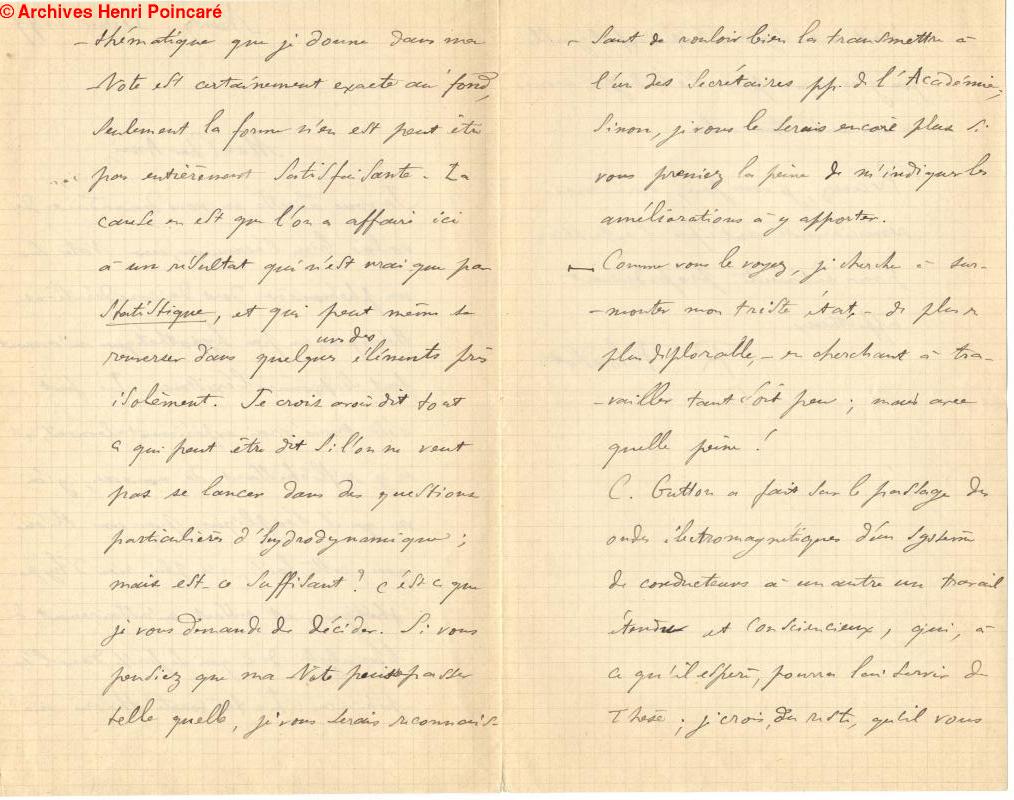 © Archives Henri Poincaré
-thématique que je donne dans ma
Note est certainement exacte au fond,
seulement la forme n'en est peut être
pas entièrement satisfaisante. La
cause en est que l'on a affaire ici
à un résultat qui n'est vrai que par
statistique, et qui peut même se
renverser dans quelques uns des éléments pris
isolément. Je crois avoir dit tout
ce qui peut être dit si l'on ne veut
pas se lancer dans des questions
particulières d'hydrodynamique ;
mais est-ce suffisant ? c'est ce que
je vous demande de décider. Si vous
pensiez que ma Note puisse passer
telle quelle, je vous serais reconnais-
sant de vouloir bien la transmettre à
l'un des Secrétaires pp. de l'Académie,
sinon, je vous le serais encore plus si
vous preniez la peine de m'indiquer les
améliorations à y apporter.
Comme vous le voyez, je cherche à sur-
-monter mon triste état, - de plus en
plus déplorable, - en cherchant à tra-
-vailler tant soit peu ; mais avec
quelle peine !
C. Gutton a fait sur le passage des
ondes électromagnétiques d'un système
de conducteurs à un autre un travail
étendu et consciencieux, qui, à
ce qu'il espère, pourra lui servir de
Thèse ; je crois, du reste, qu'il vous